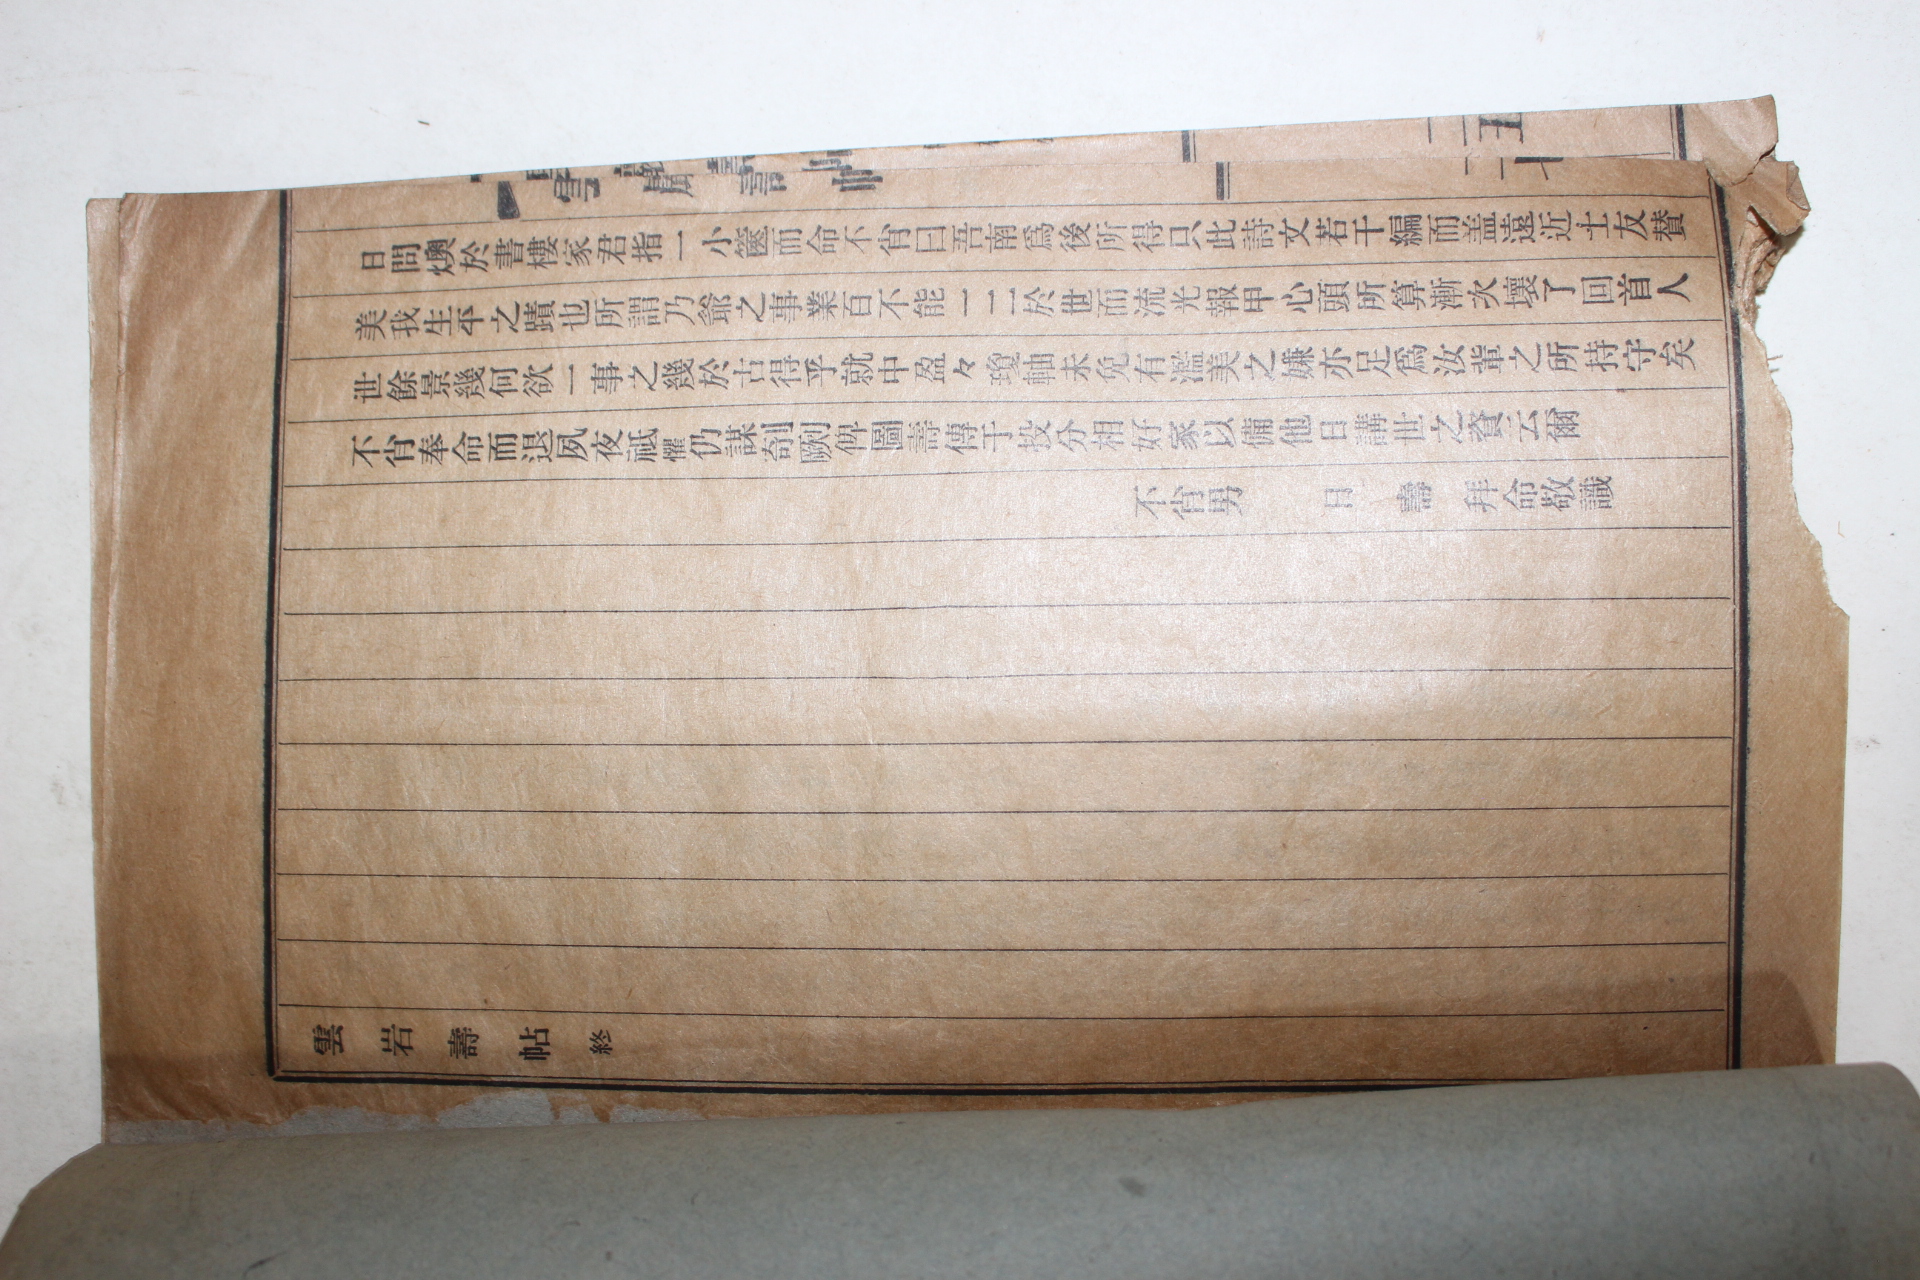 日問燠於書樓家君指一小篋而命不肖曰吾南爲後所得只此詩文若干編而盖遠近士友贊
美我生平之蹟也所謂乃爺之事業百不能一二於世而流光報甲心頭所算漸次壞了回首人
世餘景幾何欲一事之幾於古得乎就中盈々瓊軸未免有濫美之嫌亦足爲汝輩之所持守矣
不肖奉命而退夙夜祗懼仍謀剞劂俾圖壽傳于投分相好家以備他日講世之資云爾
不肖男 日壽 拜命敬識
雲岩壽帖 終